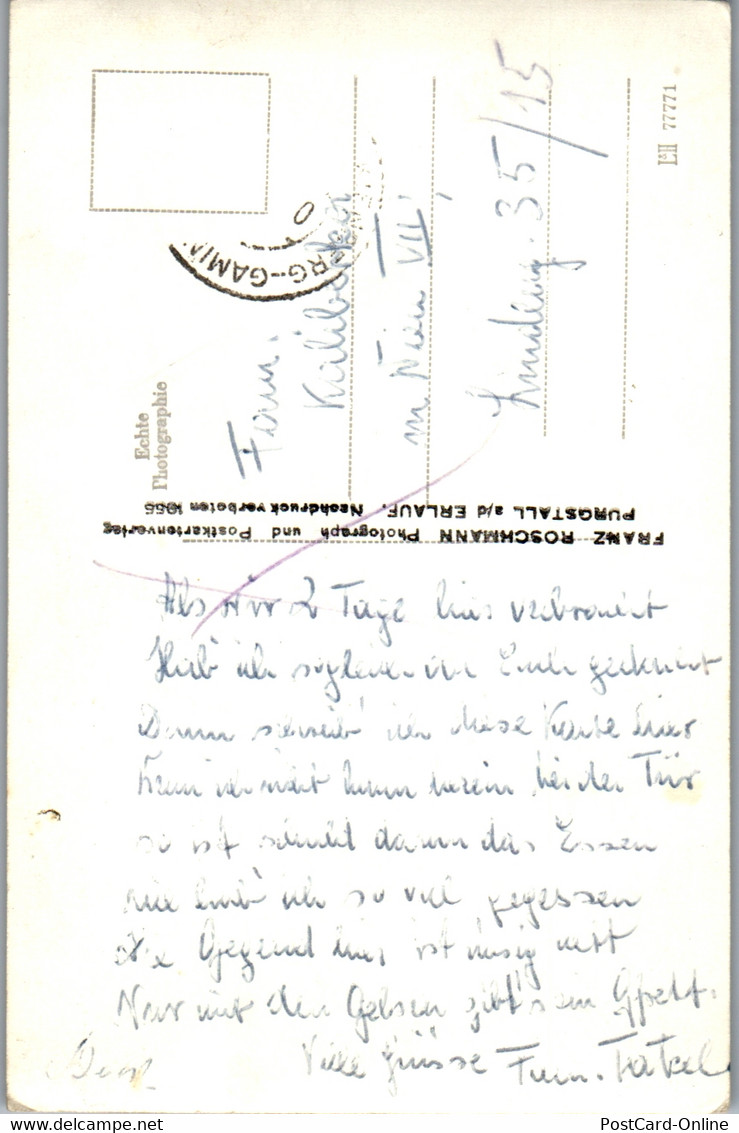 LH 77771
Echte
Photographie
RG-GAMIN
Fam.
in Wien VII
35/15
FRANZ ROSCHMANN Photograph und Postkartenverlag
PURGSTALL a/d ERLAUF. Nachdruck verboten 1955
Als wir 2 Tage hier verbracht
Hab ich sogleich an Euch gedacht
Dann schreib' ich diese Karte hier
ich nicht kann herein bei der Tür
so ist schuld daran das Essen
nie hab' ich so viel gegessen
Die Gegend hier ist riesig nett
Nur mit den Gelsen gibt's ein Gfrett.
Viele Grüsse Fam.
PostCard-Online